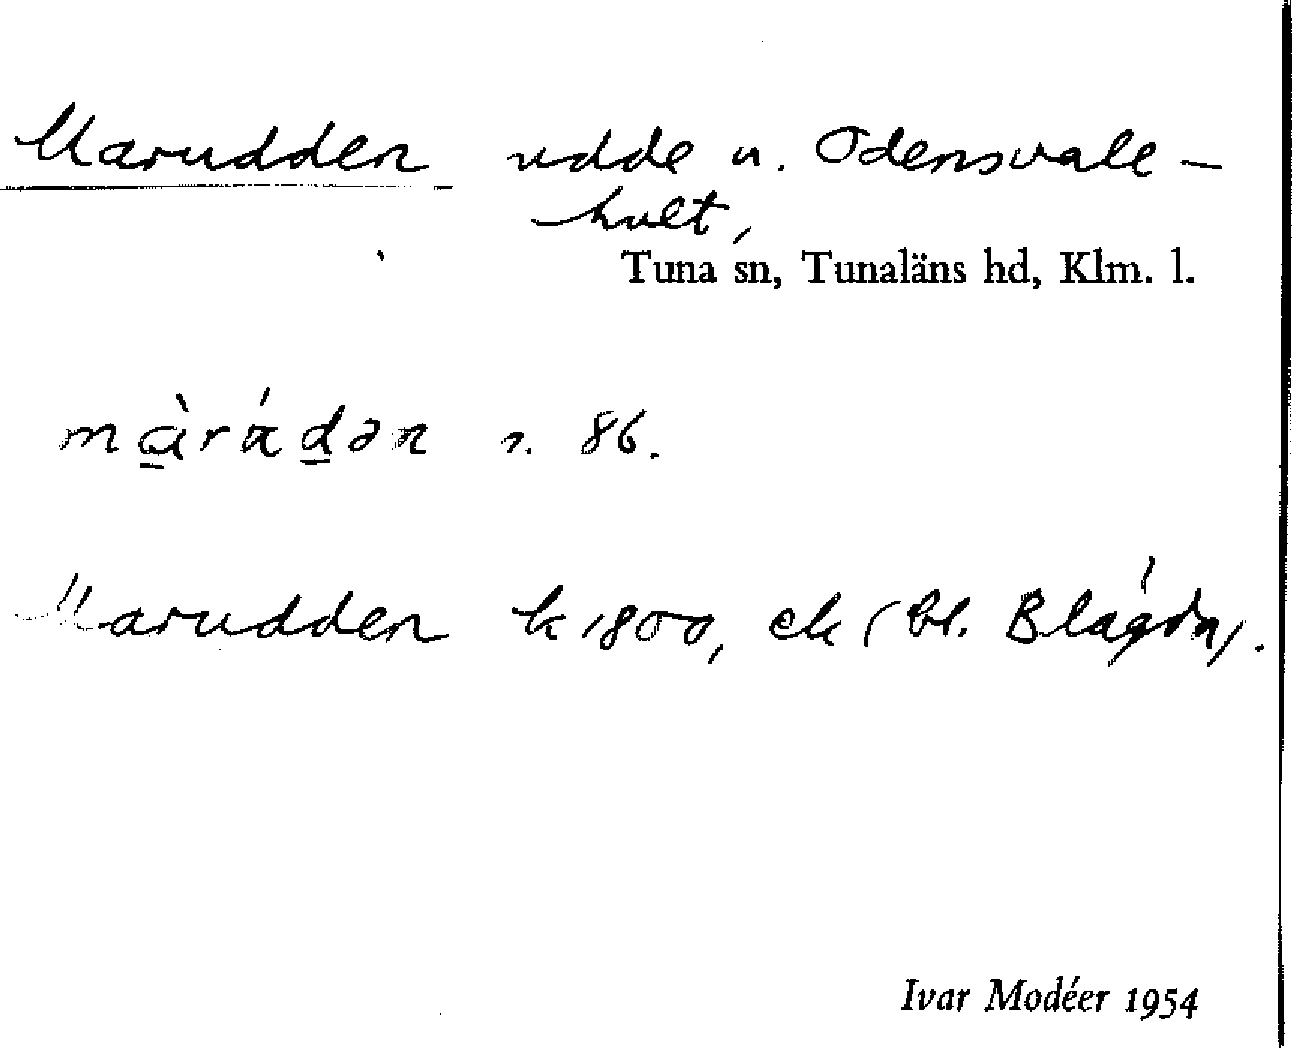 Marudden udde u. Odensvale-
hult,
Tuna sn, Tunaläns hd, Klm. l.
s. 86.
Marudden k 1800, ek (bl. Blågda).
Ivar Modéer 1954